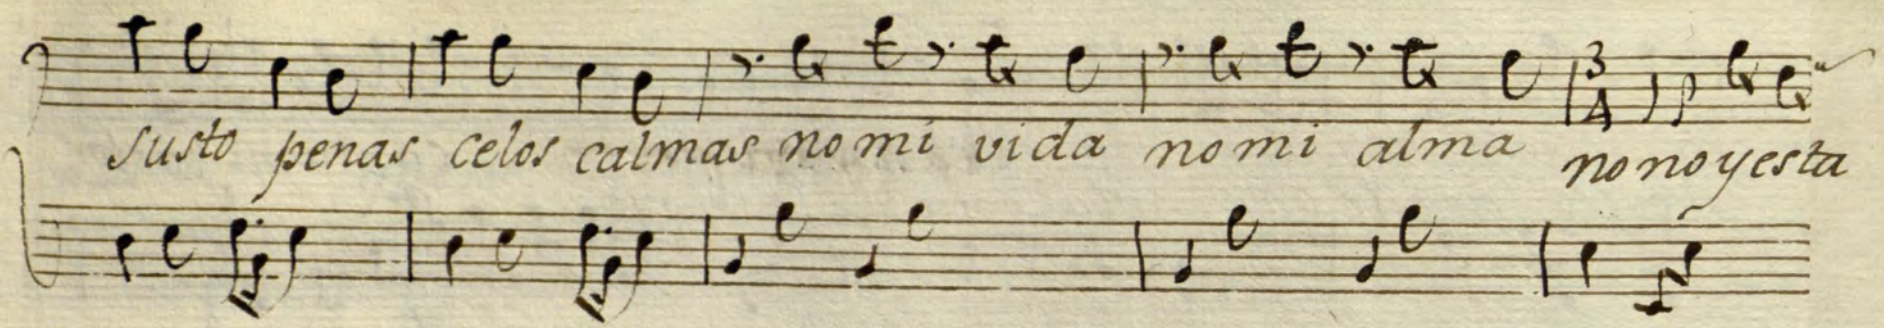 3
4
susto penas celos calmas no mi vida no mi alma no no y esta